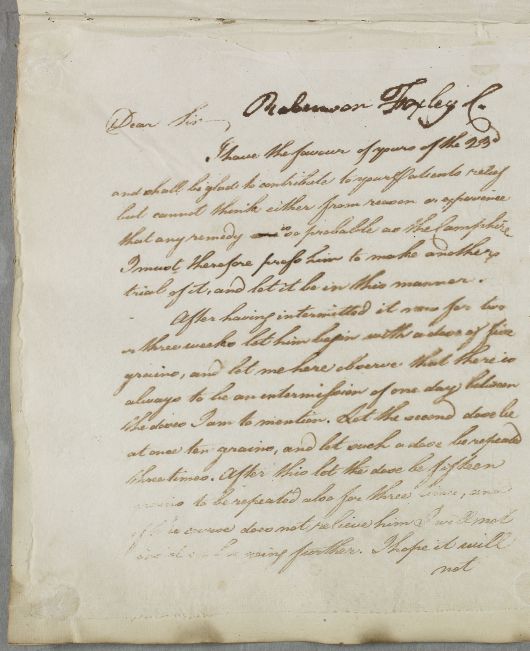 Robinson Foxley C.
Dear Sir
I have the favour of yours of the 23d
and shall be glad to contribute to your Patients relief
but cannot think either from reason or experience
that any remedy is so probable as the Camphire
I must therefore press him to make another
trial of it, and let it be in this manner.
After having intermitted it now for two
or three weeks let him begin with a dose of five
grains, and let me here observe that there is
always to be an intermission of one day between
the doses I am to mention. Let the second dose be
at once ten grains, and let such a dose be repeated
three times. After this let the dose be fifteen
grains to be repeated also for three times, and
if the course does not relieve him I will not
going further. I hope it will
not